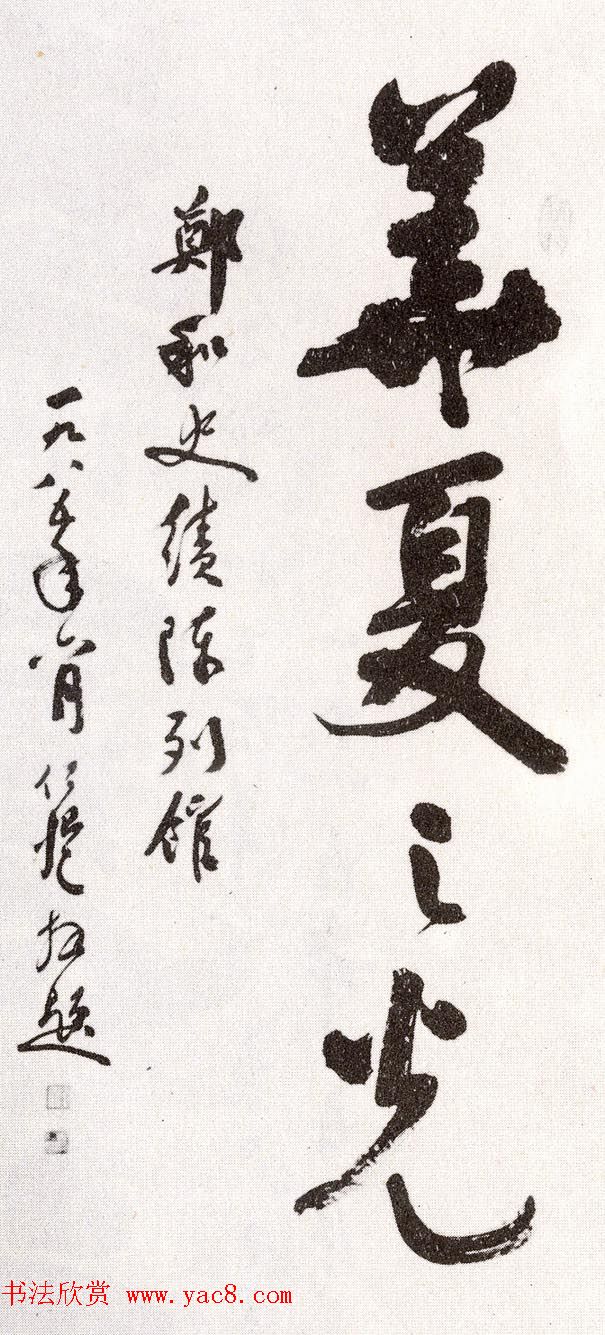 華夏之光
鄭和史績陈列館
一九八五年六月 仁愷 題
书法欣赏 www.yac8.com